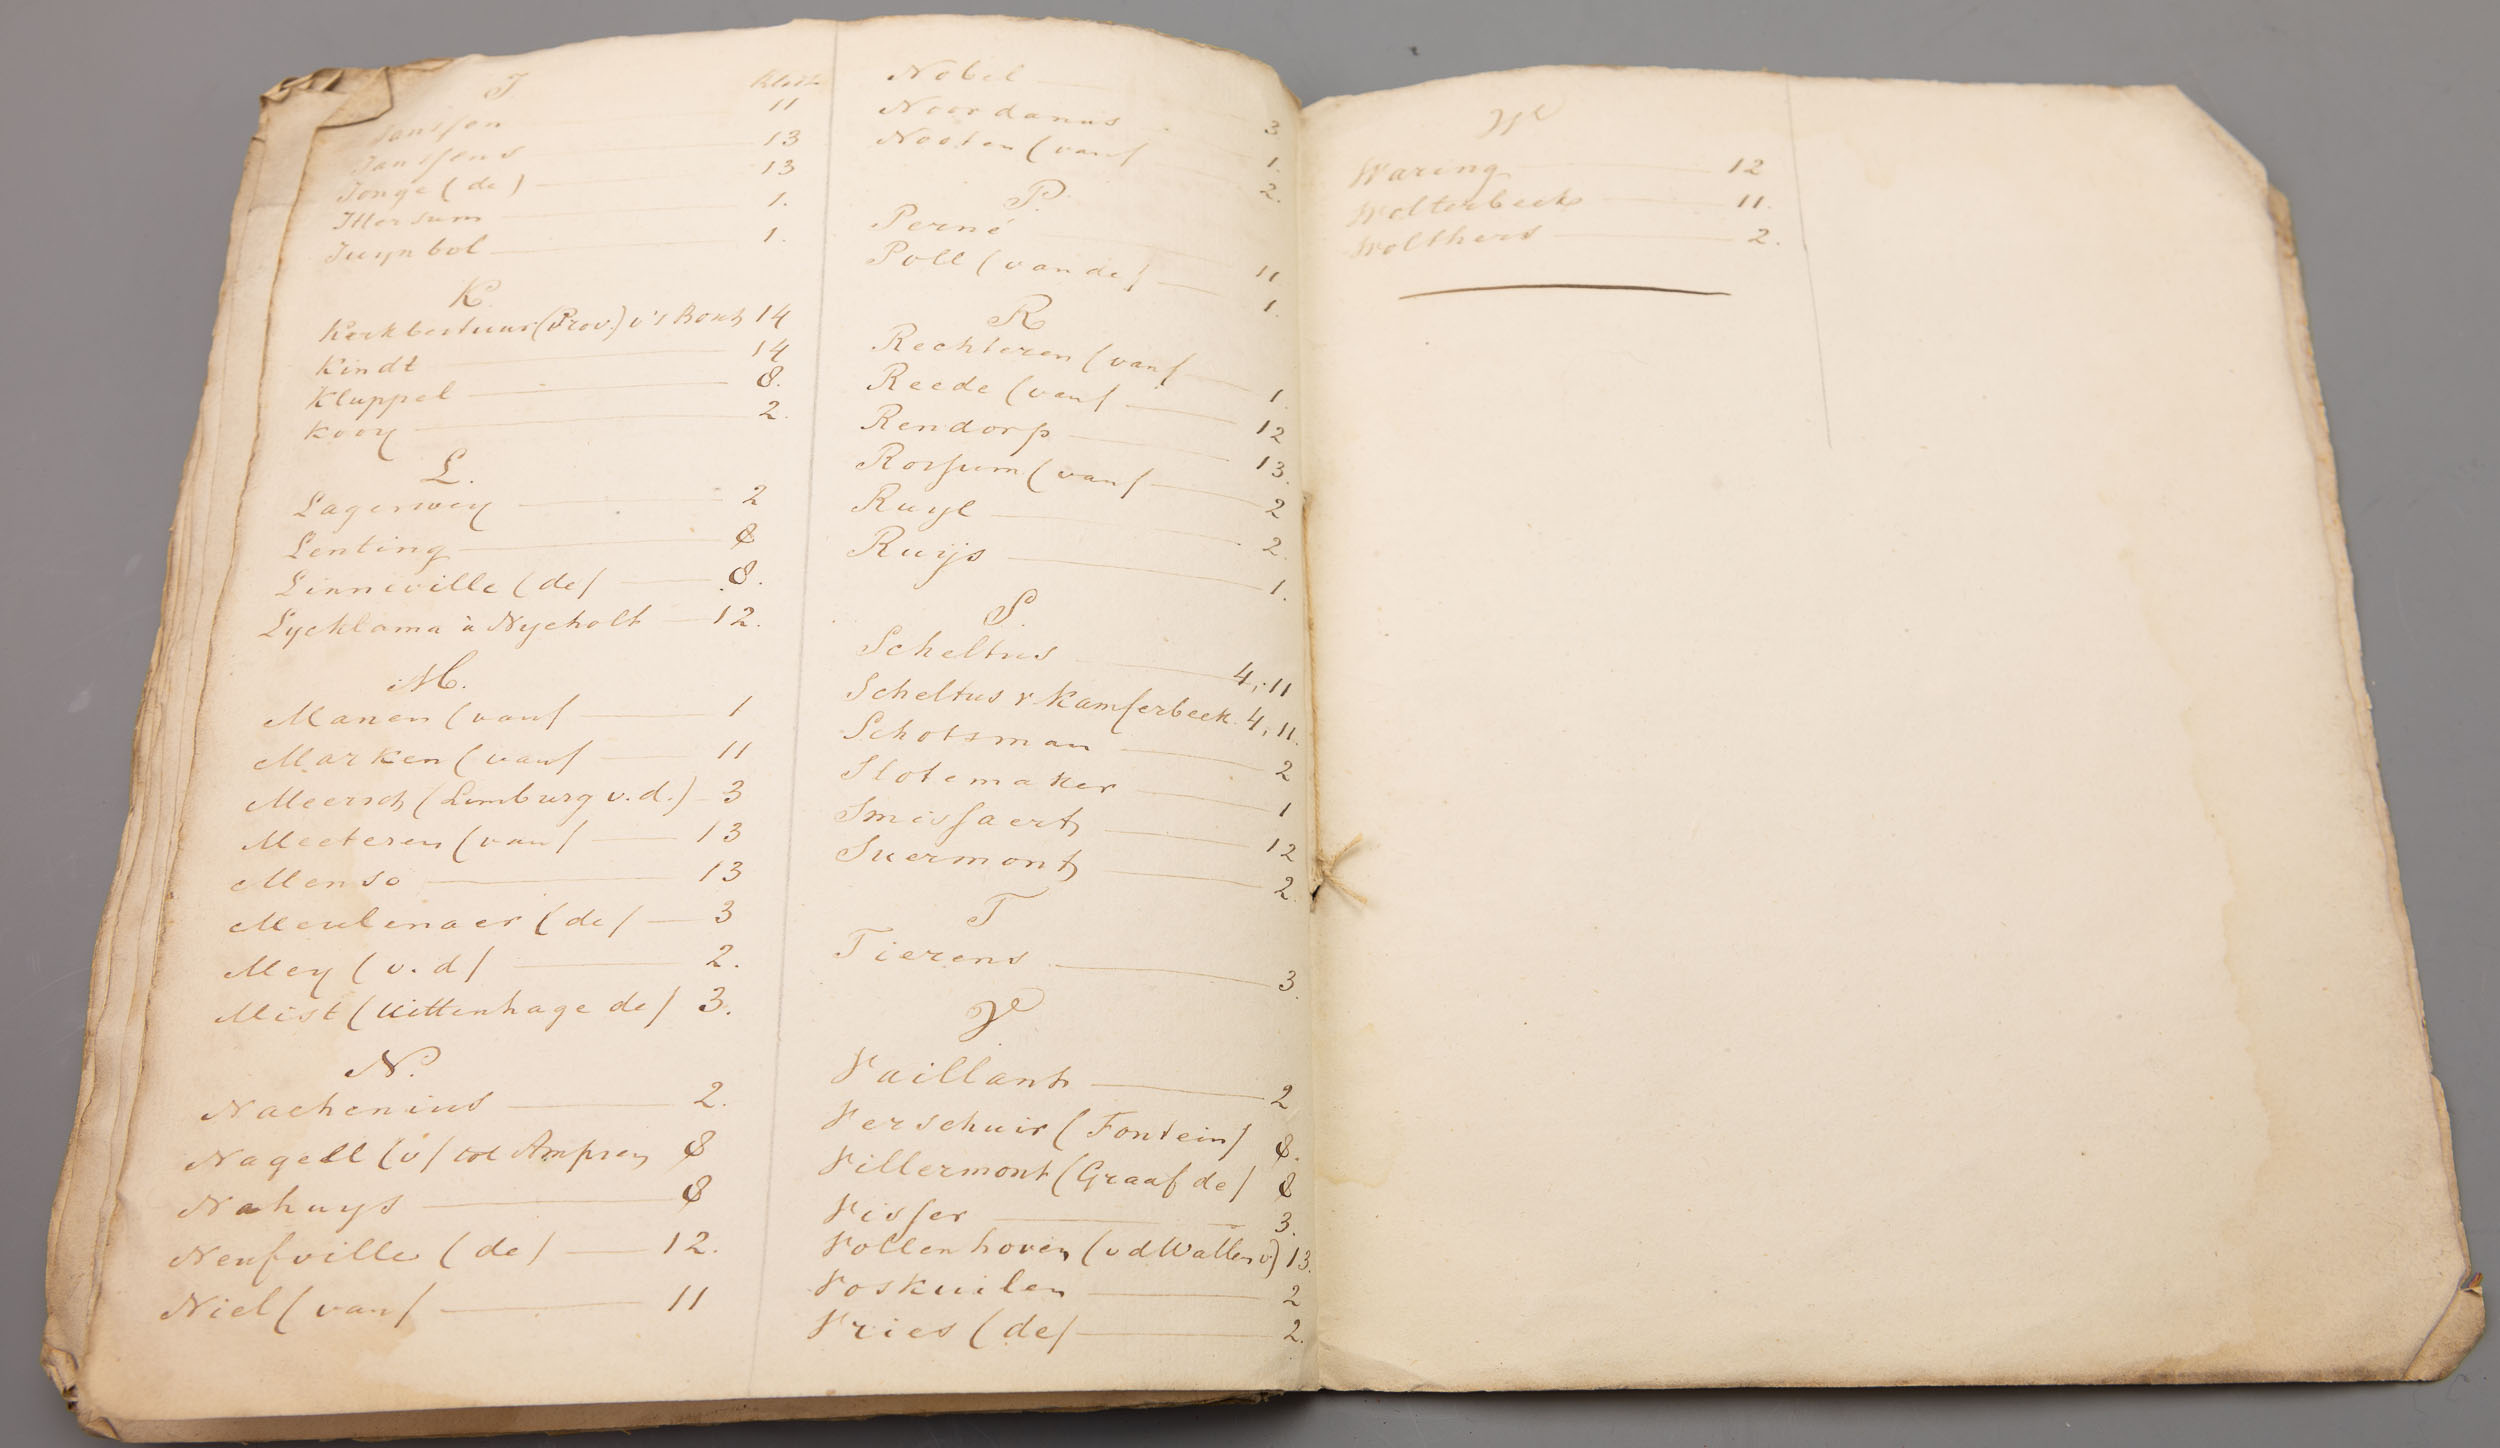 J
Klets
Janssen 11
Janssens 13
Jonge (de) 13
Ittersum 1.
Juynbol 1.
K.
Kerkbestuur (Prov.) v's Bosch 14
Kindt 14
Kluppel 8.
Kooy 2.
L.
Lagerwey 2
Lenting 8
Linniville (de) 8.
Lycklama à Nycholt 12.
M.
Manen (van) 1
Marken (van) 11
Meersch (Limburg v.d.) 3
Meeteren (van) 13
Menso 13
Meulenaer (de) 3
Mey (v.d) 2.
Mist (Uittenhage de) 3.
N.
Nachenius 2.
Nagell (v) tot Ampsen 8
Nahuys 8
Neufville (de) 12.
Niel (van) 11
Nobel 3
Noordanus 1.
Nooten (van) 2.
P.
Perné 11
Poll (van de) 1.
R
Rechteren (van) 1.
Reede (van) 12
Rendorp 13.
Rossum (van) 2
Ruyl 2.
Ruijs 1.
S.
Scheltus 4, 11
Scheltus v. Kamferbeek 4, 11.
Schotsman 2
Slotemaker 1
Smissaert 12
Suermont 2
T
Tierens 3.
V
Vaillant 2
Verschuir (Fontein) 8.
Villermont (Graaf de) 8
Visser 3.
Vollenhoven (v d Wallen v) 13.
Voskuilen 2
Vries (de) 2.
W
Waring 12
Wolterbeek 11.
Wolthers 2.